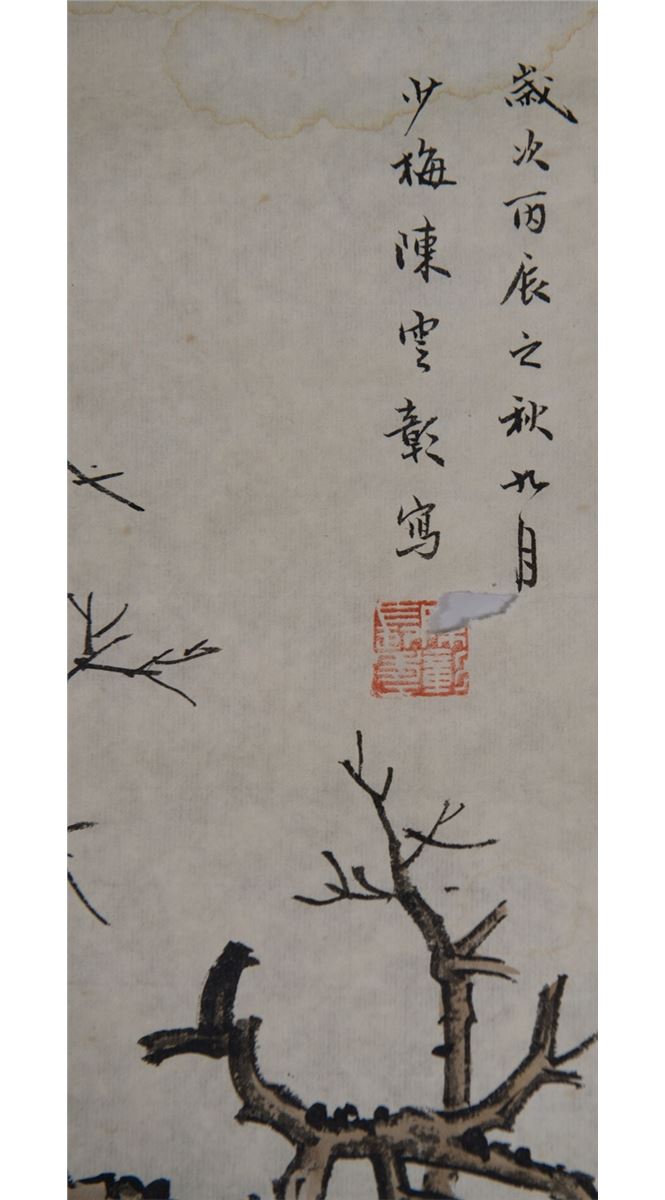 歲次丙辰之秋九月
少梅陳雲彰寫